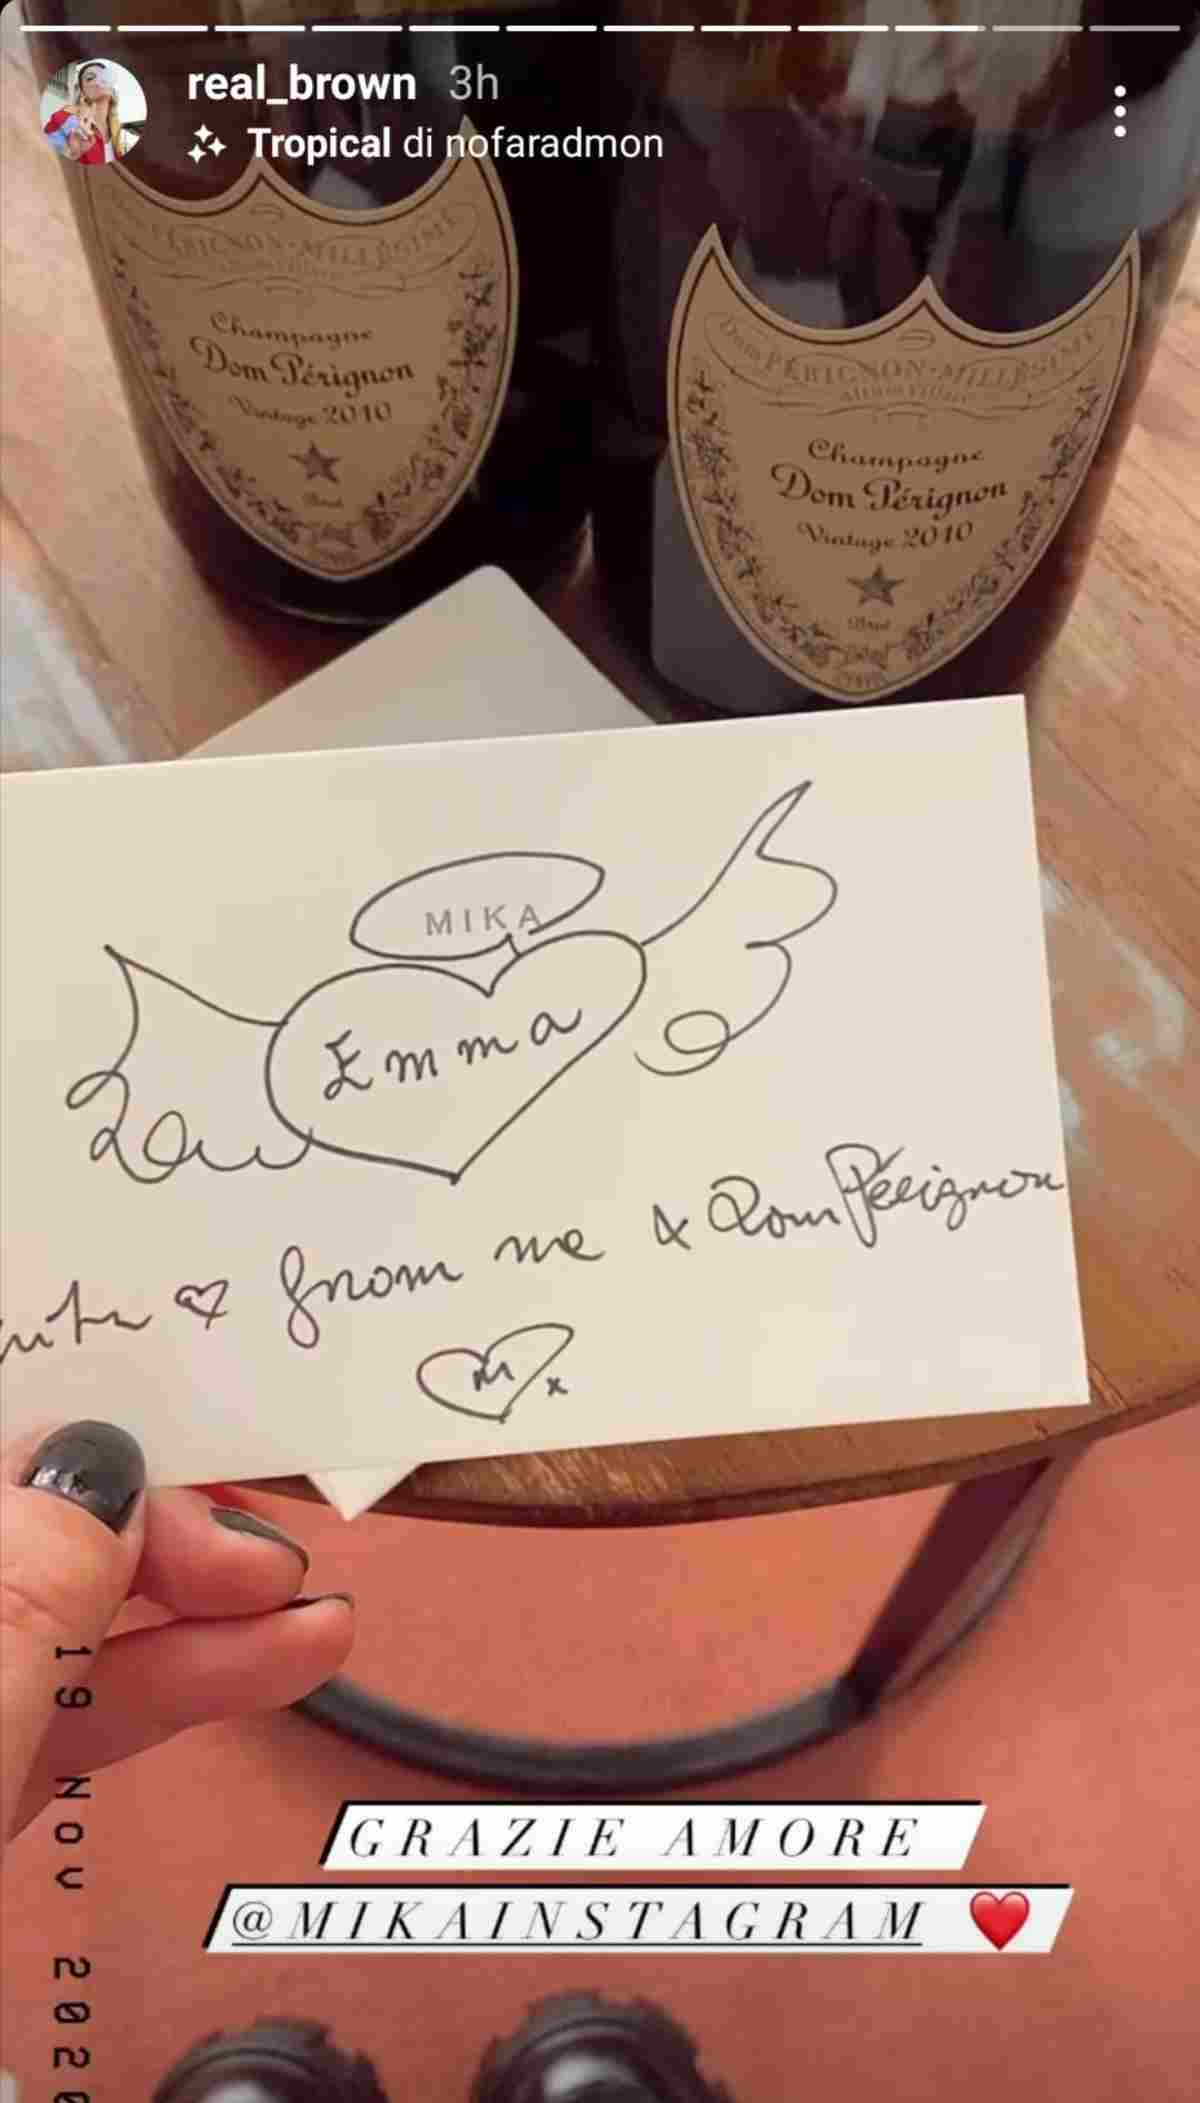 real_brown 3h
Tropical di nofaradmon
Champagne
Dom Pérignon
Vintage 2010
Dom PÉRIGNON-MILLÉSIME
Champagne
Dom Pérignon
Vintage 2010
Brut
MIKA
Emma
♥ from me & Dom Pérignon
M x
19 NOV 2020
GRAZIE AMORE
@MIKAINSTAGRAM ❤️